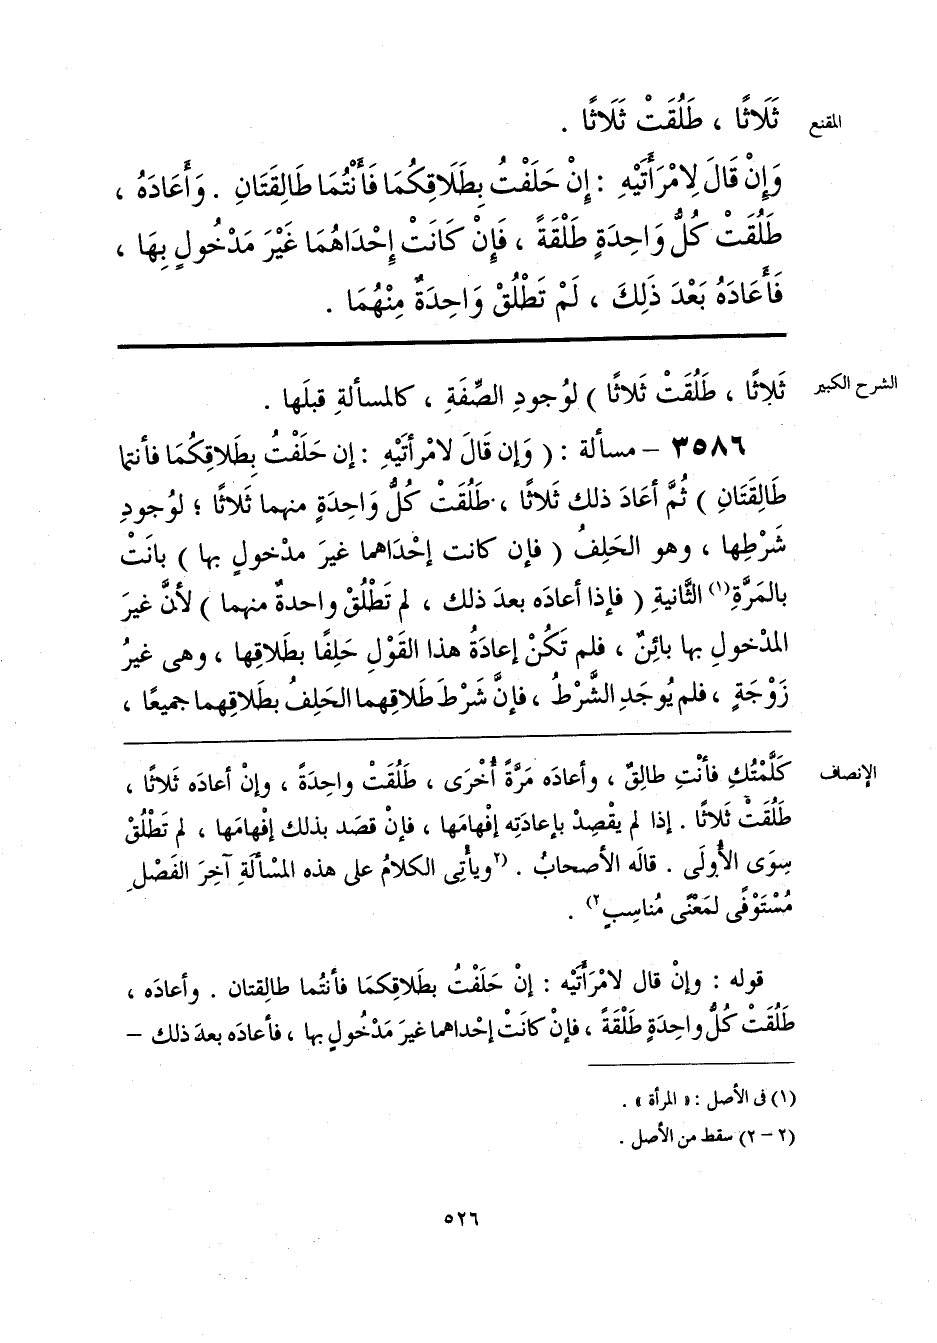 المقنع
ثَلَاثًا ، طَلُقَتْ ثَلَاثًا .
وَإِنْ قَالَ لِامْرَأَتَيْهِ : إِنْ حَلَفْتُ بِطَلَاقِكُمَا فَأَنْتُمَا طَالِقَتَانِ . وَأَعَادَهُ ،
طَلُقَتْ كُلُّ وَاحِدَةٍ طَلْقَةً ، فَإِنْ كَانَتْ إِحْدَاهُمَا غَيْرَ مَدْخُولٍ بِهَا ،
فَأَعَادَهُ بَعْدَ ذَلِكَ ، لَمْ تَطْلُقْ وَاحِدَةٌ مِنْهُمَا .
الشرح الكبير
ثَلاثًا ، طَلُقَتْ ثَلاثًا ) لوُجودِ الصِّفَةِ ، كالمسألةِ قبلَها .
٣٥٨٦ – مسألة : ( وَإن قَالَ لامْرأتَيْهِ : إن حَلَفْتُ بِطَلاقِكُمَا فأنتما
طَالِقَتَانِ ) ثُمَّ أعَادَ ذلك ثَلاثًا ، طَلُقَتْ كُلُّ وَاحِدَةٍ منهما ثَلاثًا ؛ لوُجودِ
شَرْطِها ، وهو الحَلِفُ ( فإن كانت إحْدَاهما غيرَ مدْخولٍ بها ) بانَتْ
بالمَرَّةِ(١) الثَّانيةِ ( فإذا أعادَه بعدَ ذلك ، لم تَطْلُقْ واحدةٌ منهما ) لأنَّ غيرَ
المدْخولِ بها بائِنٌ ، فلم تَكُنْ إعادَةُ هذا القَوْلِ حَلِفًا بطَلاقِها ، وهى غيرُ
زَوْجَةٍ ، فلم يُوجَدِ الشَّرْطُ ، فإنَّ شَرْطَ طَلاقِهما الحَلِفُ بطَلاقِهما جميعًا ،
الإنصاف
كَلَّمْتُكِ فأنْتِ طالِقٌ ، وأعادَه مَرَّةً أُخْرَى ، طَلُقَتْ واحِدَةً ، وإنْ أعادَه ثَلاثًا ،
طَلُقَتْ ثَلاثًا . إذا لم يقْصِدْ بإعادَتِه إفْهامَها ، فإنْ قصَد بذلك إفْهامَها ، لم تَطْلُقْ
سِوَى الأُولَى . قالَه الأصحابُ . (٢ويأْتِى الكلامُ على هذه المَسْألَةِ آخِرَ الفَصْلِ
مُسْتَوْفًى لمَعْنًى مُناسِبٍ٢) .
قوله : وإنْ قال لامْرَأَتَيْه : إنْ حَلَفْتُ بطَلاقِكمَا فأنتُما طالِقتان . وأعادَه ،
طَلُقَتْ كُلُّ واحِدَةٍ طَلْقَةً ، فإنْ كانَتْ إحْداهما غيرَ مَدْخُولٍ بها ، فأعادَه بعدَ ذلك –
(١) فى الأصل : « المرأة » .
(٢ – ٢) سقط من الأصل .
٥٢٦